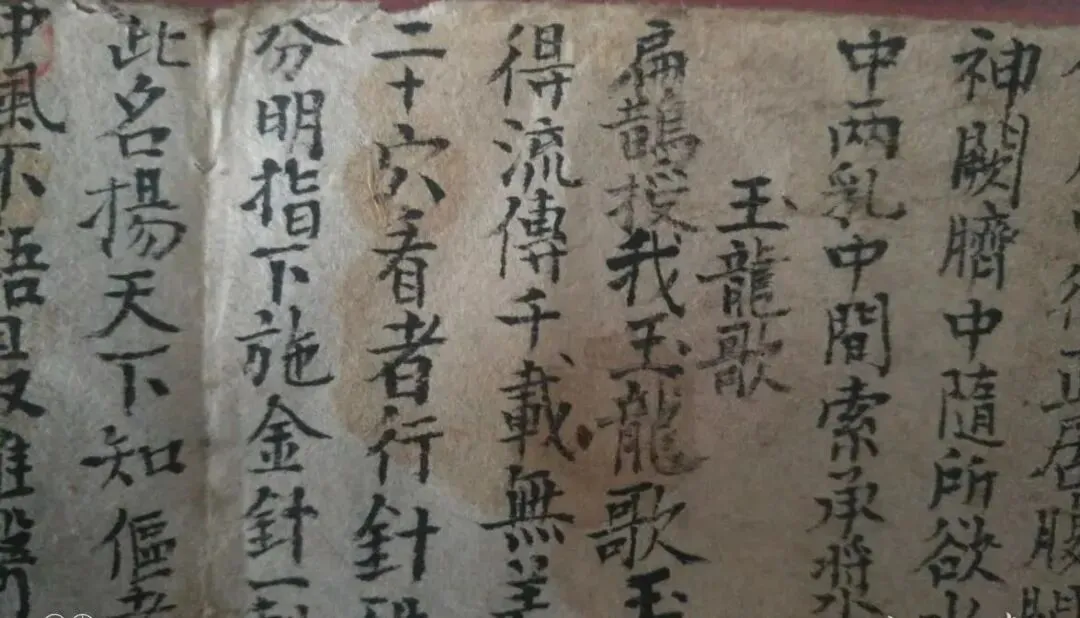 正居腰間
神闕臍中隨所欲水
中两乳中間索承漿
玉龍歌
扁鵲授我玉龍歌玉
得流傳千載無
二十穴看者行針
分明指下施金針一
此名揚天下知傴者
中風不語最難